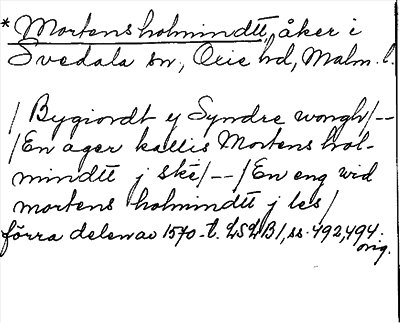 * Mortensholmindtt, åker i
Svedala sn, Oxie hd, Malm. l.
/ Bygiordt y Syndre wongh/--
/En ager kallis Mortens hol-
mindtt j ské/--/En eng wid
mortens holmindtt j les/
förra delen av 1570-t. LSLB1, ss. 492, 494.
orig.